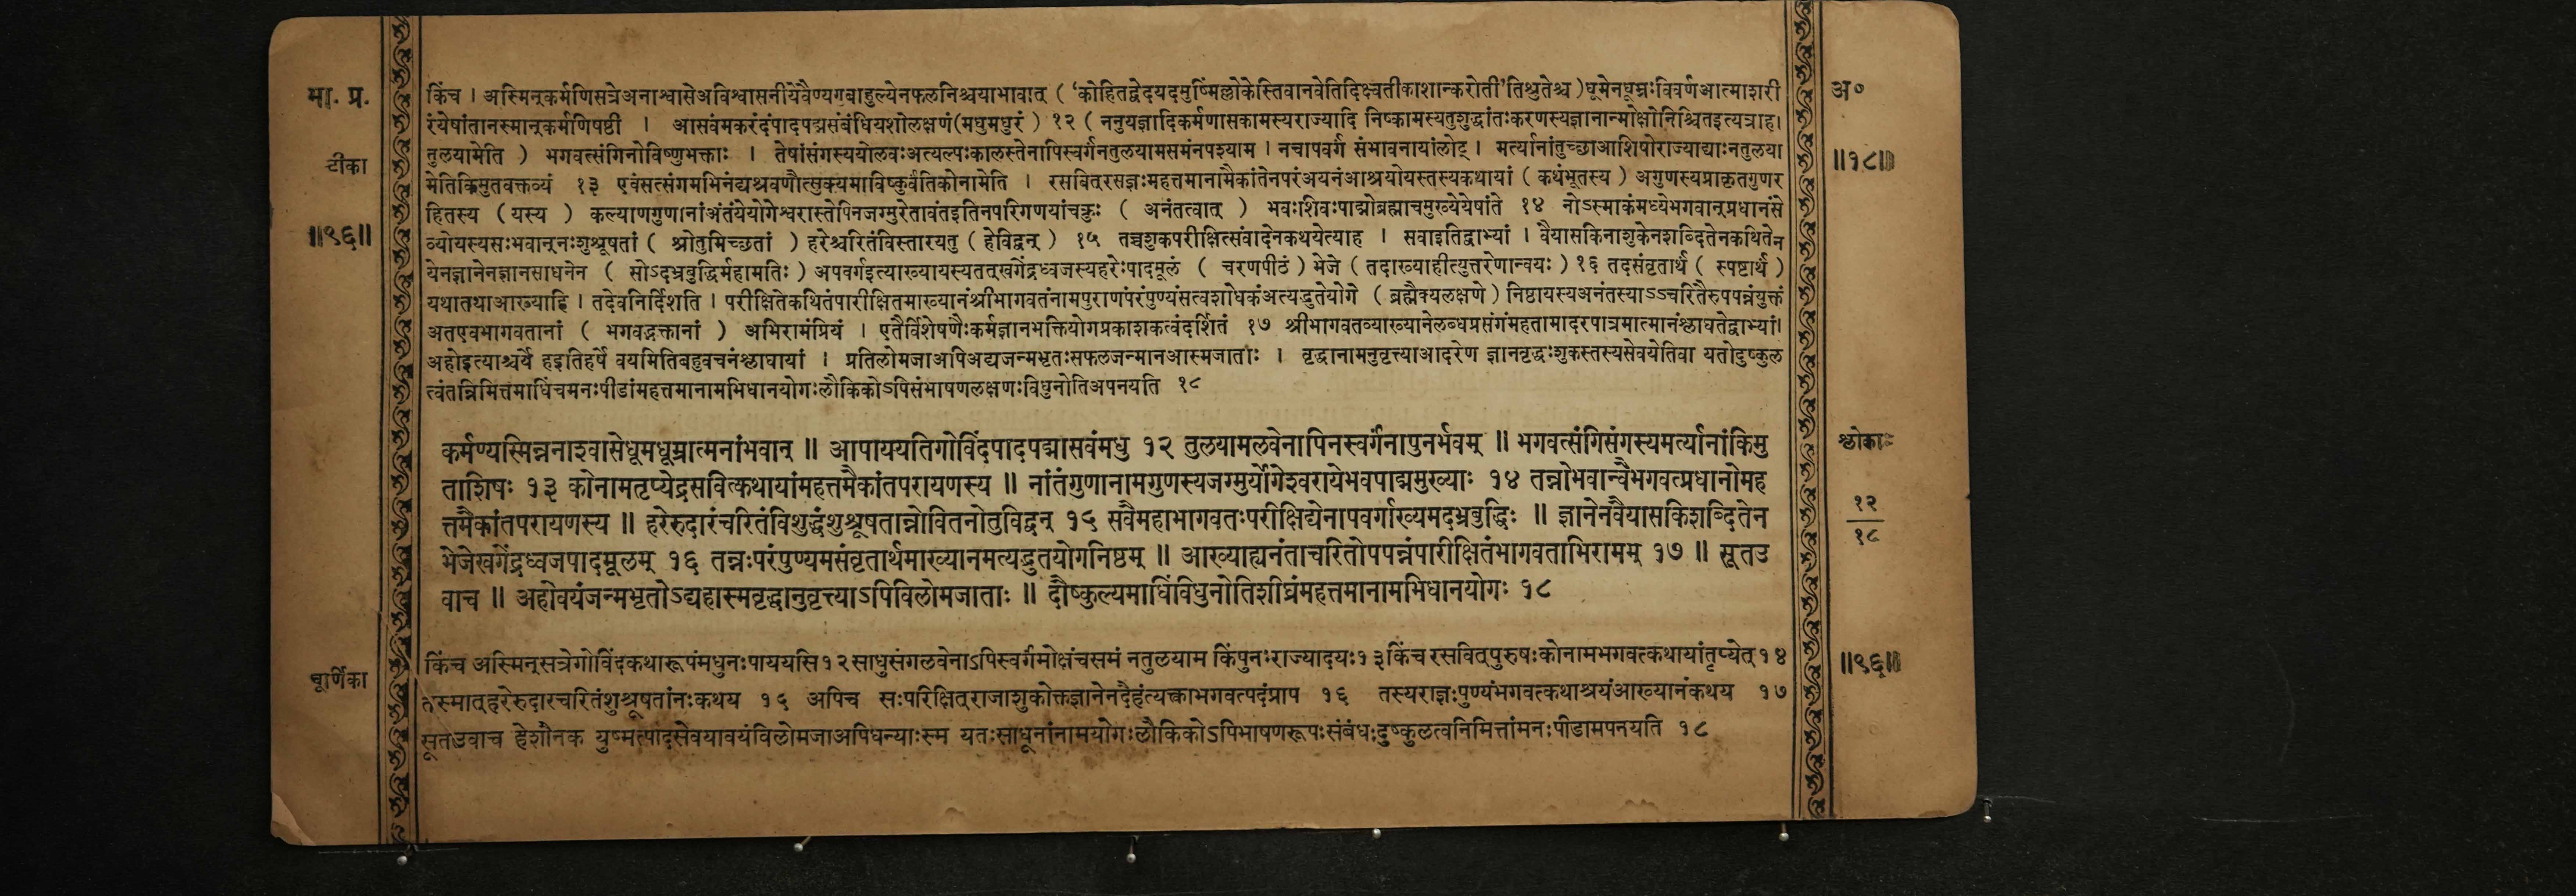 मा. प्र.
टीका
॥९६॥
किंच । अस्मिन्कर्मणिसत्रेअनाश्वासेअविश्वासनीयेवैण्यगबाहुल्येनफलनिश्चयाभावात् ( 'कोहितद्वेदयदमुष्मिंल्लोकेस्तिवानवेतिदिक्ष्वतीकाशान्करोती'तिश्रुतेश्च )धूमेनधूम्रःविवर्णआत्माशरी
रंयेषांतानस्मान्कर्मणिषष्ठी । आसवंमकरंदंपादपद्मसंबंधियशोलक्षणं(मधुमधुरं ) १२ ( ननुयज्ञादिकर्मणासकामस्यराज्यादि निष्कामस्यतुशुद्धांतःकरणस्यज्ञानान्मोक्षोनिश्चितइत्यत्राह।
तुलयामेति ) भगवत्संगिनोविष्णुभक्ताः । तेषांसंगस्ययोलवःअत्यल्पःकालस्तेनापिस्वर्गंनतुलयामसमंनपश्याम । नचापवर्गं संभावनायांलोट् । मर्त्यानांतुच्छाआशिषोराज्याद्याःनतुलया
मेतिकिमुतवक्तव्यं १३ एवंसत्संगमभिनंद्यश्रवणौत्सुक्यमाविष्कुर्वंतिकोनामेति । रसवित्रसज्ञःमहत्तमानामैकांतेनपरंअयनंआश्रयोयस्तस्यकथायां ( कथंभूतस्य ) अगुणस्यप्राकृतगुणर
हितस्य (यस्य ) कल्याणगुणानांअंतंयेयोगेश्वरास्तेपिनजग्मुरेतावंतइतिनपरिगणयांचक्रुः ( अनंतत्वात् ) भवःशिवःपाद्मोब्रह्माचमुख्येयेषांते १४ नोऽस्माकंमध्येभगवान्प्रधानंसे
व्योयस्यसःभवान्नःशुश्रूषतां ( श्रोतुमिच्छतां ) हरेश्चरितंविस्तारयतु ( हेविद्वन् ) १५ तच्चशुकपरीक्षित्संवादेनकथयेत्याह । सवाइतिद्वाभ्यां । वैयासकिनाशुकेनशब्दितेनकथितेन
येनज्ञानेनज्ञानसाधनेन ( सोऽदभ्रबुद्धिर्महामतिः ) अपवर्गइत्याख्यायस्यतत्खगेंद्रध्वजस्यहरेःपादमूलं ( चरणपीठं ) भेजे ( तदाख्याहीत्युत्तरेणान्वयः ) १६ तदसंवृतार्थं ( स्पष्टार्थं )
यथातथाआख्याहि । तदेवनिर्दिशति । परीक्षितेकथितंपारीक्षितमाख्यानंश्रीभागवतंनामपुराणंपरंपुण्यंसत्वशोधकंअत्यद्भुतेयोगे ( ब्रह्मैक्यलक्षणे ) निष्ठायस्यअनंतस्याऽऽचरितैरुपपन्नंयुक्तं
अतएवभागवतानां ( भगवद्भक्तानां ) अभिरामंप्रियं । एतैर्विशेषणैःकर्मज्ञानभक्तियोगप्रकाशकत्वंदर्शितं १७ श्रीभागवतव्याख्यानेलब्धप्रसंगंमहतामादरपात्रमात्मानंश्लाघतेद्वाभ्यां।
अहोइत्याश्चर्ये हइतिहर्षे वयमितिबहुवचनंश्लाघायां । प्रतिलोमजाअपिअद्यजन्मभृतःसफलजन्मानआस्मजाताः । वृद्धानामनुवृत्त्याआदरेण ज्ञानवृद्धःशुकस्तस्यसेवयेतिवा यतोदुष्कुल
त्वंतन्निमित्तमाधिंचमनःपीडांमहत्तमानामभिधानयोगःलौकिकोऽपिसंभाषणलक्षणःविधुनोतिअपनयति १८
कर्मण्यस्मिन्ननाश्वासेधूमधूम्रात्मनांभवान् ॥ आपाययतिगोविंदपादपद्मासवंमधु १२ तुलयामलवेनापिनस्वर्गंनापुनर्भवम् ॥ भगवत्संगिसंगस्यमर्त्यानांकिमु
ताशिषः १३ कोनामतृप्येद्रसवित्कथायांमहत्तमैकांतपरायणस्य ॥ नांतंगुणानामगुणस्यजग्मुर्योगेश्वरायेभवपाद्ममुख्याः १४ तन्नोभवान्वैभगवत्प्रधानोमह
त्तमैकांतपरायणस्य ॥ हरेरुदारंचरितंविशुद्धंशुश्रूषतान्नोवितनोतुविद्वन् १५ सवैमहाभागवतःपरीक्षिद्येनापवर्गाख्यमदभ्रबुद्धिः ॥ ज्ञानेनवैयासकिशब्दितेन
भेजेखगेंद्रध्वजपादमूलम् १६ तन्नःपरंपुण्यमसंवृतार्थमाख्यानमत्यद्भुतयोगनिष्ठम् ॥ आख्याह्यनंताचरितोपपन्नंपारीक्षितंभागवताभिरामम् १७ ॥ सूतउ
वाच ॥ अहोवयंजन्मभृतोऽद्यहास्मवृद्धानुवृत्त्याऽपिविलोमजाताः ॥ दौष्कुल्यमाधिंविधुनोतिशीघ्रंमहत्तमानामभिधानयोगः १८
चूर्णिका
किंच अस्मिन्सत्रेगोविंदकथारूपंमधुनःपाययसि१२साधुसंगलवेनाऽपिस्वर्गंमोक्षंचसमं नतुलयाम किंपुनःराज्यादयः१३किंच रसवित्पुरुषःकोनामभगवत्कथायांतृप्येत्१४
तस्मात्हरेरुदारचरितंशुश्रूषतांनःकथय १५ अपिच सःपरिक्षित्राजाशुकोक्तज्ञानेनदैहंत्यक्त्वाभगवत्पदंप्राप १६ तस्यराज्ञःपुण्यंभगवत्कथाश्रयंआख्यानंकथय १७
सूतउवाच हेशौनक युष्मत्पादसेवयावयंविलोमजाअपिधन्याःस्म यतःसाधूनांनामयोगःलौकिकोऽपिभाषणरूपःसंबंधःदुष्कुलत्वनिमित्तांमनःपीडामपनयति १८
अ०
॥१८॥
श्लोकाः
१२
१८
॥९६॥